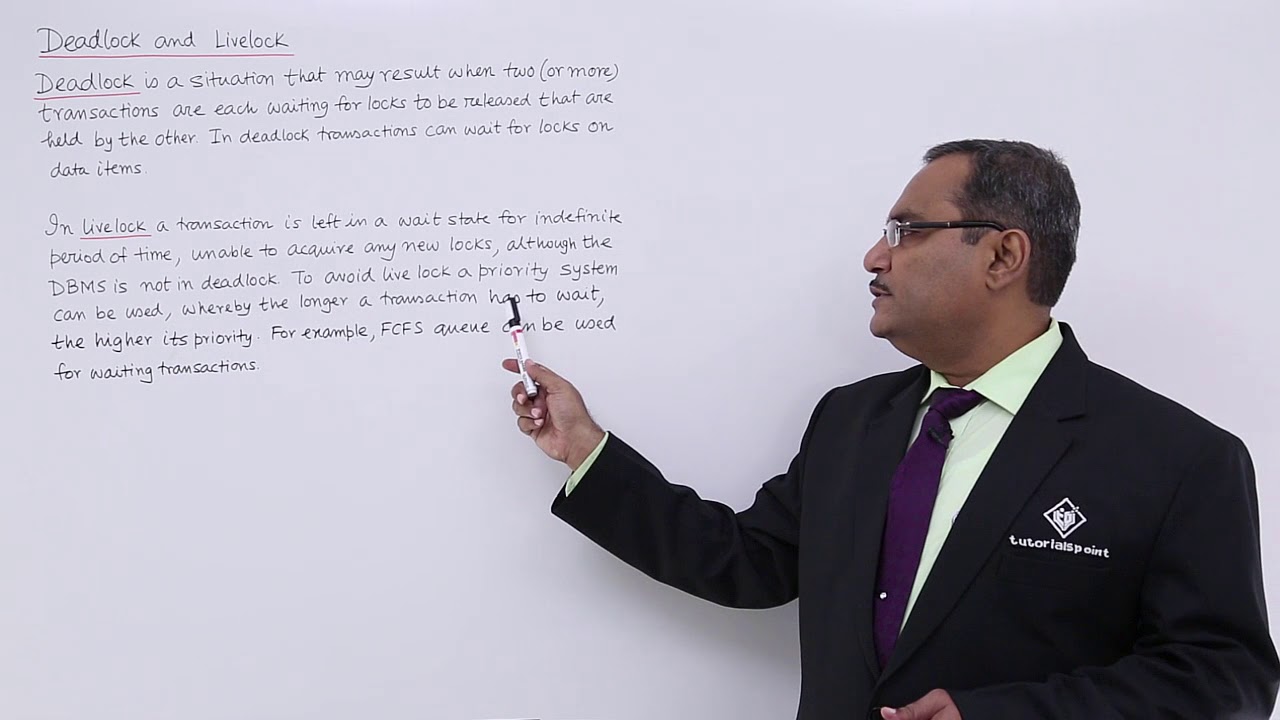 Deadlock and Livelock
Deadlock is a situation that may result when two (or more)
transactions are each waiting for locks to be released that are
held by the other. In deadlock transactions can wait for locks on
data items.
In livelock a transaction is left in a wait state for indefinite
period of time, unable to acquire any new locks, although the
DBMS is not in deadlock. To avoid live lock a priority system
can be used, whereby the longer a transaction has to wait,
the higher its priority. For example, FCFS queue can be used
for waiting transactions.
tutorialspoint